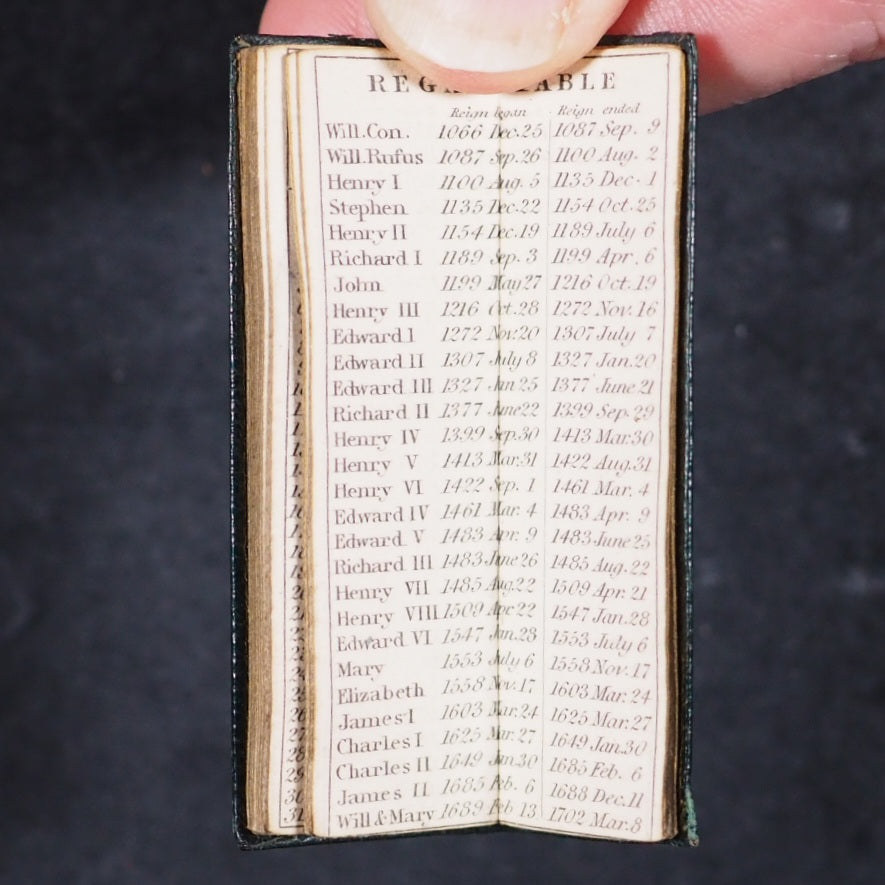 REG ABLE
Reign began Reign ended
Will.Con. 1066 Dec.25 1087 Sep. 9
Will.Rufus 1087 Sep.26 1100 Aug. 2
Henry I 1100 Aug. 5 1135 Dec. 1
Stephen 1135 Dec.22 1154 Oct.25
Henry II 1154 Dec.19 1189 July 6
Richard I 1189 Sep. 3 1199 Apr. 6
John 1199 May 27 1216 Oct.19
Henry III 1216 Oct.28 1272 Nov.16
Edward I 1272 Nov.20 1307 July 7
Edward II 1307 July 8 1327 Jan.20
Edward III 1327 Jan 25 1377 June 21
Richard II 1377 June 22 1399 Sep. 29
Henry IV 1399 Sep.30 1413 Mar.30
Henry V 1413 Mar.31 1422 Aug.31
Henry VI 1422 Sep. 1 1461 Mar. 4
Edward IV 1461 Mar. 4 1483 Apr. 9
Edward V 1483 Apr. 9 1483 June 25
Richard III 1483 June 26 1485 Aug.22
Henry VII 1485 Aug.22 1509 Apr. 21
Henry VIII 1509 Apr 22 1547 Jan.28
Edward VI 1547 Jan.28 1553 July 6
Mary 1553 July 6 1558 Nov.17
Elizabeth 1558 Nov.17 1603 Mar. 24
James I 1603 Mar.24 1625 Mar.27
Charles I 1625 Mar.27 1649 Jan.30
Charles II 1649 Jan.30 1685 Feb. 6
James II 1685 Feb. 6 1688 Dec.11
Will & Mary 1689 Feb 13 1702 Mar.8